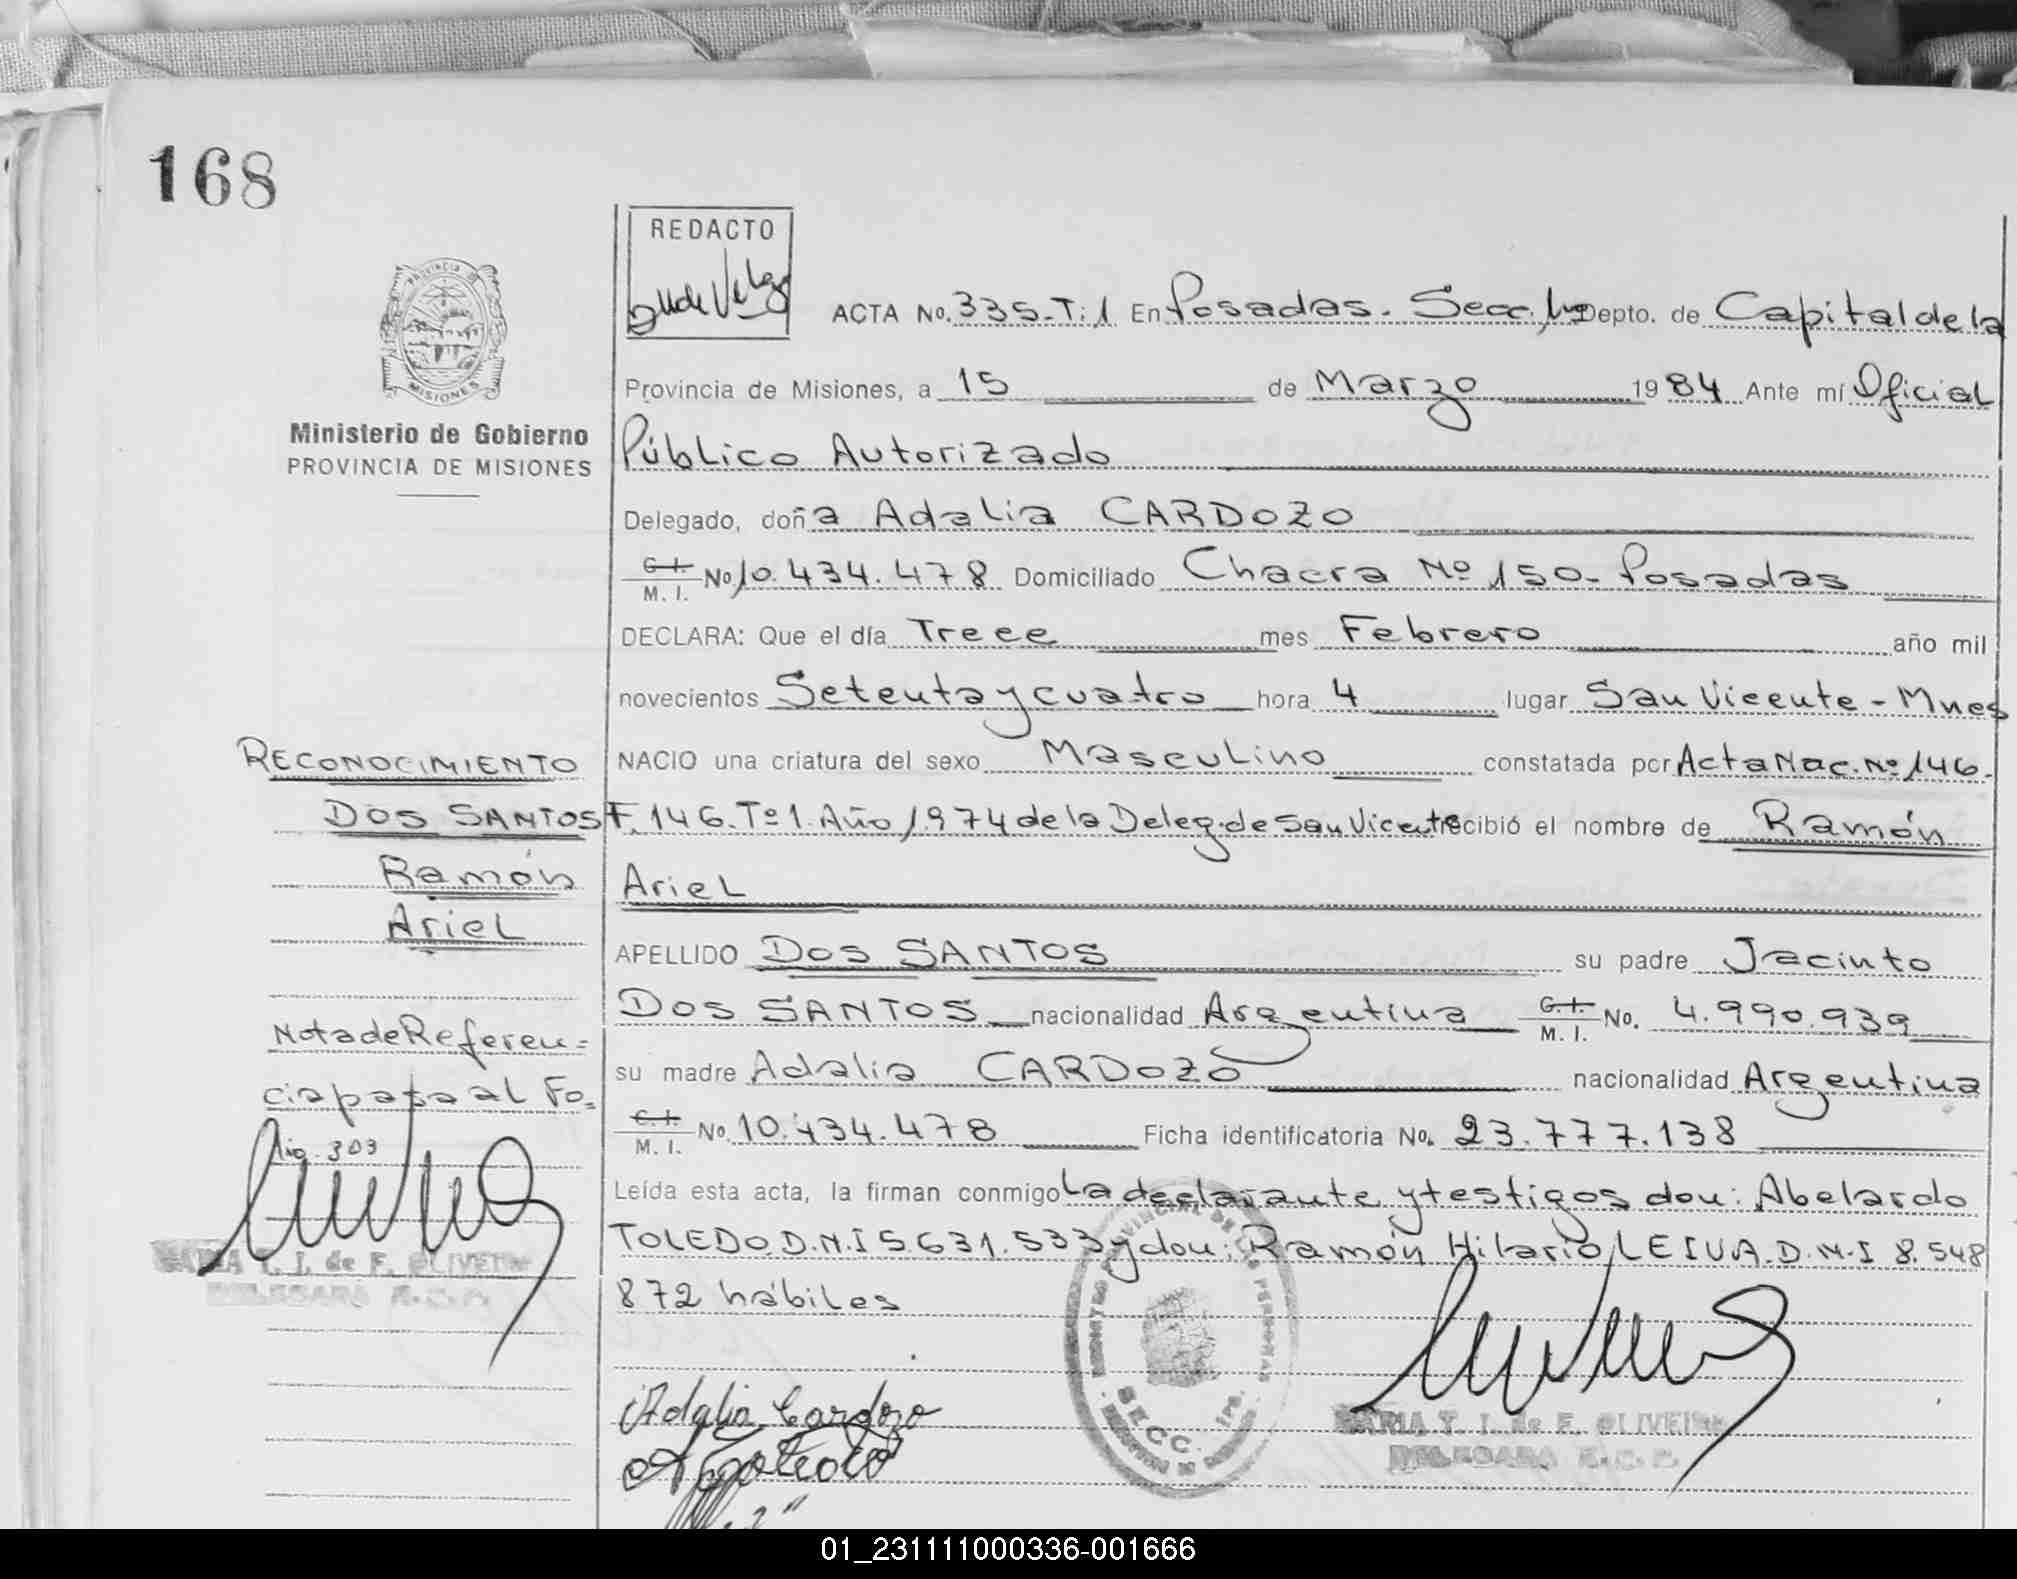 168
REDACTO
PROVINCIA DE
MISIONES
Ministerio de Gobierno
PROVINCIA DE MISIONES
ACTA No. 335-T:1 En Posadas. Secc. 1ª Depto. de Capital de la
Provincia de Misiones, a 15 de Marzo 1984 Ante mí Oficial
Público Autorizado
Delegado, doña Adalia CARDOZO
C. I.
M. I. No 10.434.478 Domiciliado Chacra Nº 150- Posadas
DECLARA: Que el día Trece mes Febrero año mil
novecientos Setenta y cuatro hora 4 lugar San Vicente - Mnes
NACIO una criatura del sexo Masculino constatada por Acta Nac. Nº 146-
F. 146. Tº 1. Año 1974 de la Deleg. de San Vicente recibió el nombre de Ramón
Ariel
APELLIDO DOS SANTOS su padre Jacinto
DOS SANTOS nacionalidad Argentina C. I.
M. I. No. 4.990.939
su madre Adalia CARDOZO nacionalidad Argentina
C. I.
M. I. No. 10.434.478 Ficha identificatoria No. 23.777.138
Leída esta acta, la firman conmigo La declarante y testigos don: Abelardo
TOLEDO. D.N.I 5.631.533 y don: Ramón Hilario LEIVA. D.N.I 8.548
872 hábiles
RECONOCIMIENTO
DOS SANTOS
Ramón
Ariel
Nota de Referen=
cia pasa al Fo.
303
MARIA T. I. de F. OLIVEIRA
DELEGADA R.C.P.
Adalia Cardozo
REGISTRO PROVINCIAL DE LAS PERSONAS
SECC. 1ra.
MARIA T. I. de F. OLIVEIRA
DELEGADA R.C.P.
01_231111000336-001666